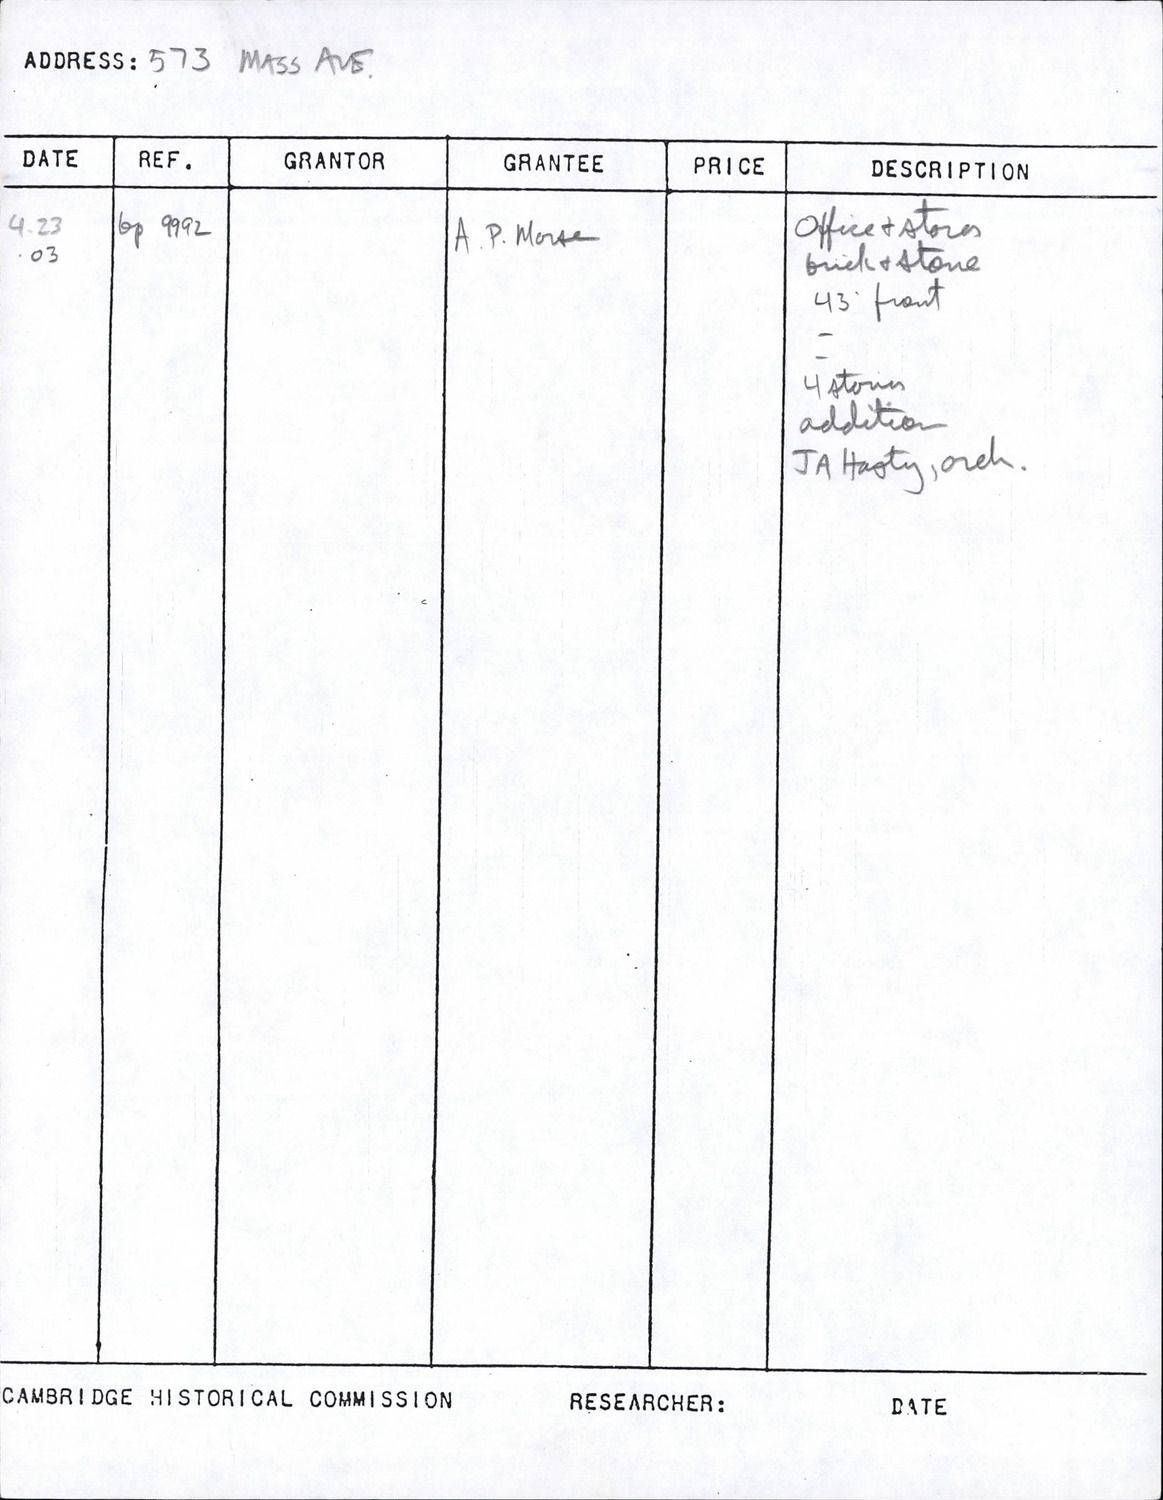 ADDRESS: 573 MASS AVE.
DATE REF. GRANTOR GRANTEE PRICE DESCRIPTION
4.23 bp 9992 A. P. Morse Office & stores
.03 brick & stone
43' front
–
–
4 stories
addition
JA Hasty, arch.
CAMBRIDGE HISTORICAL COMMISSION RESEARCHER: DATE